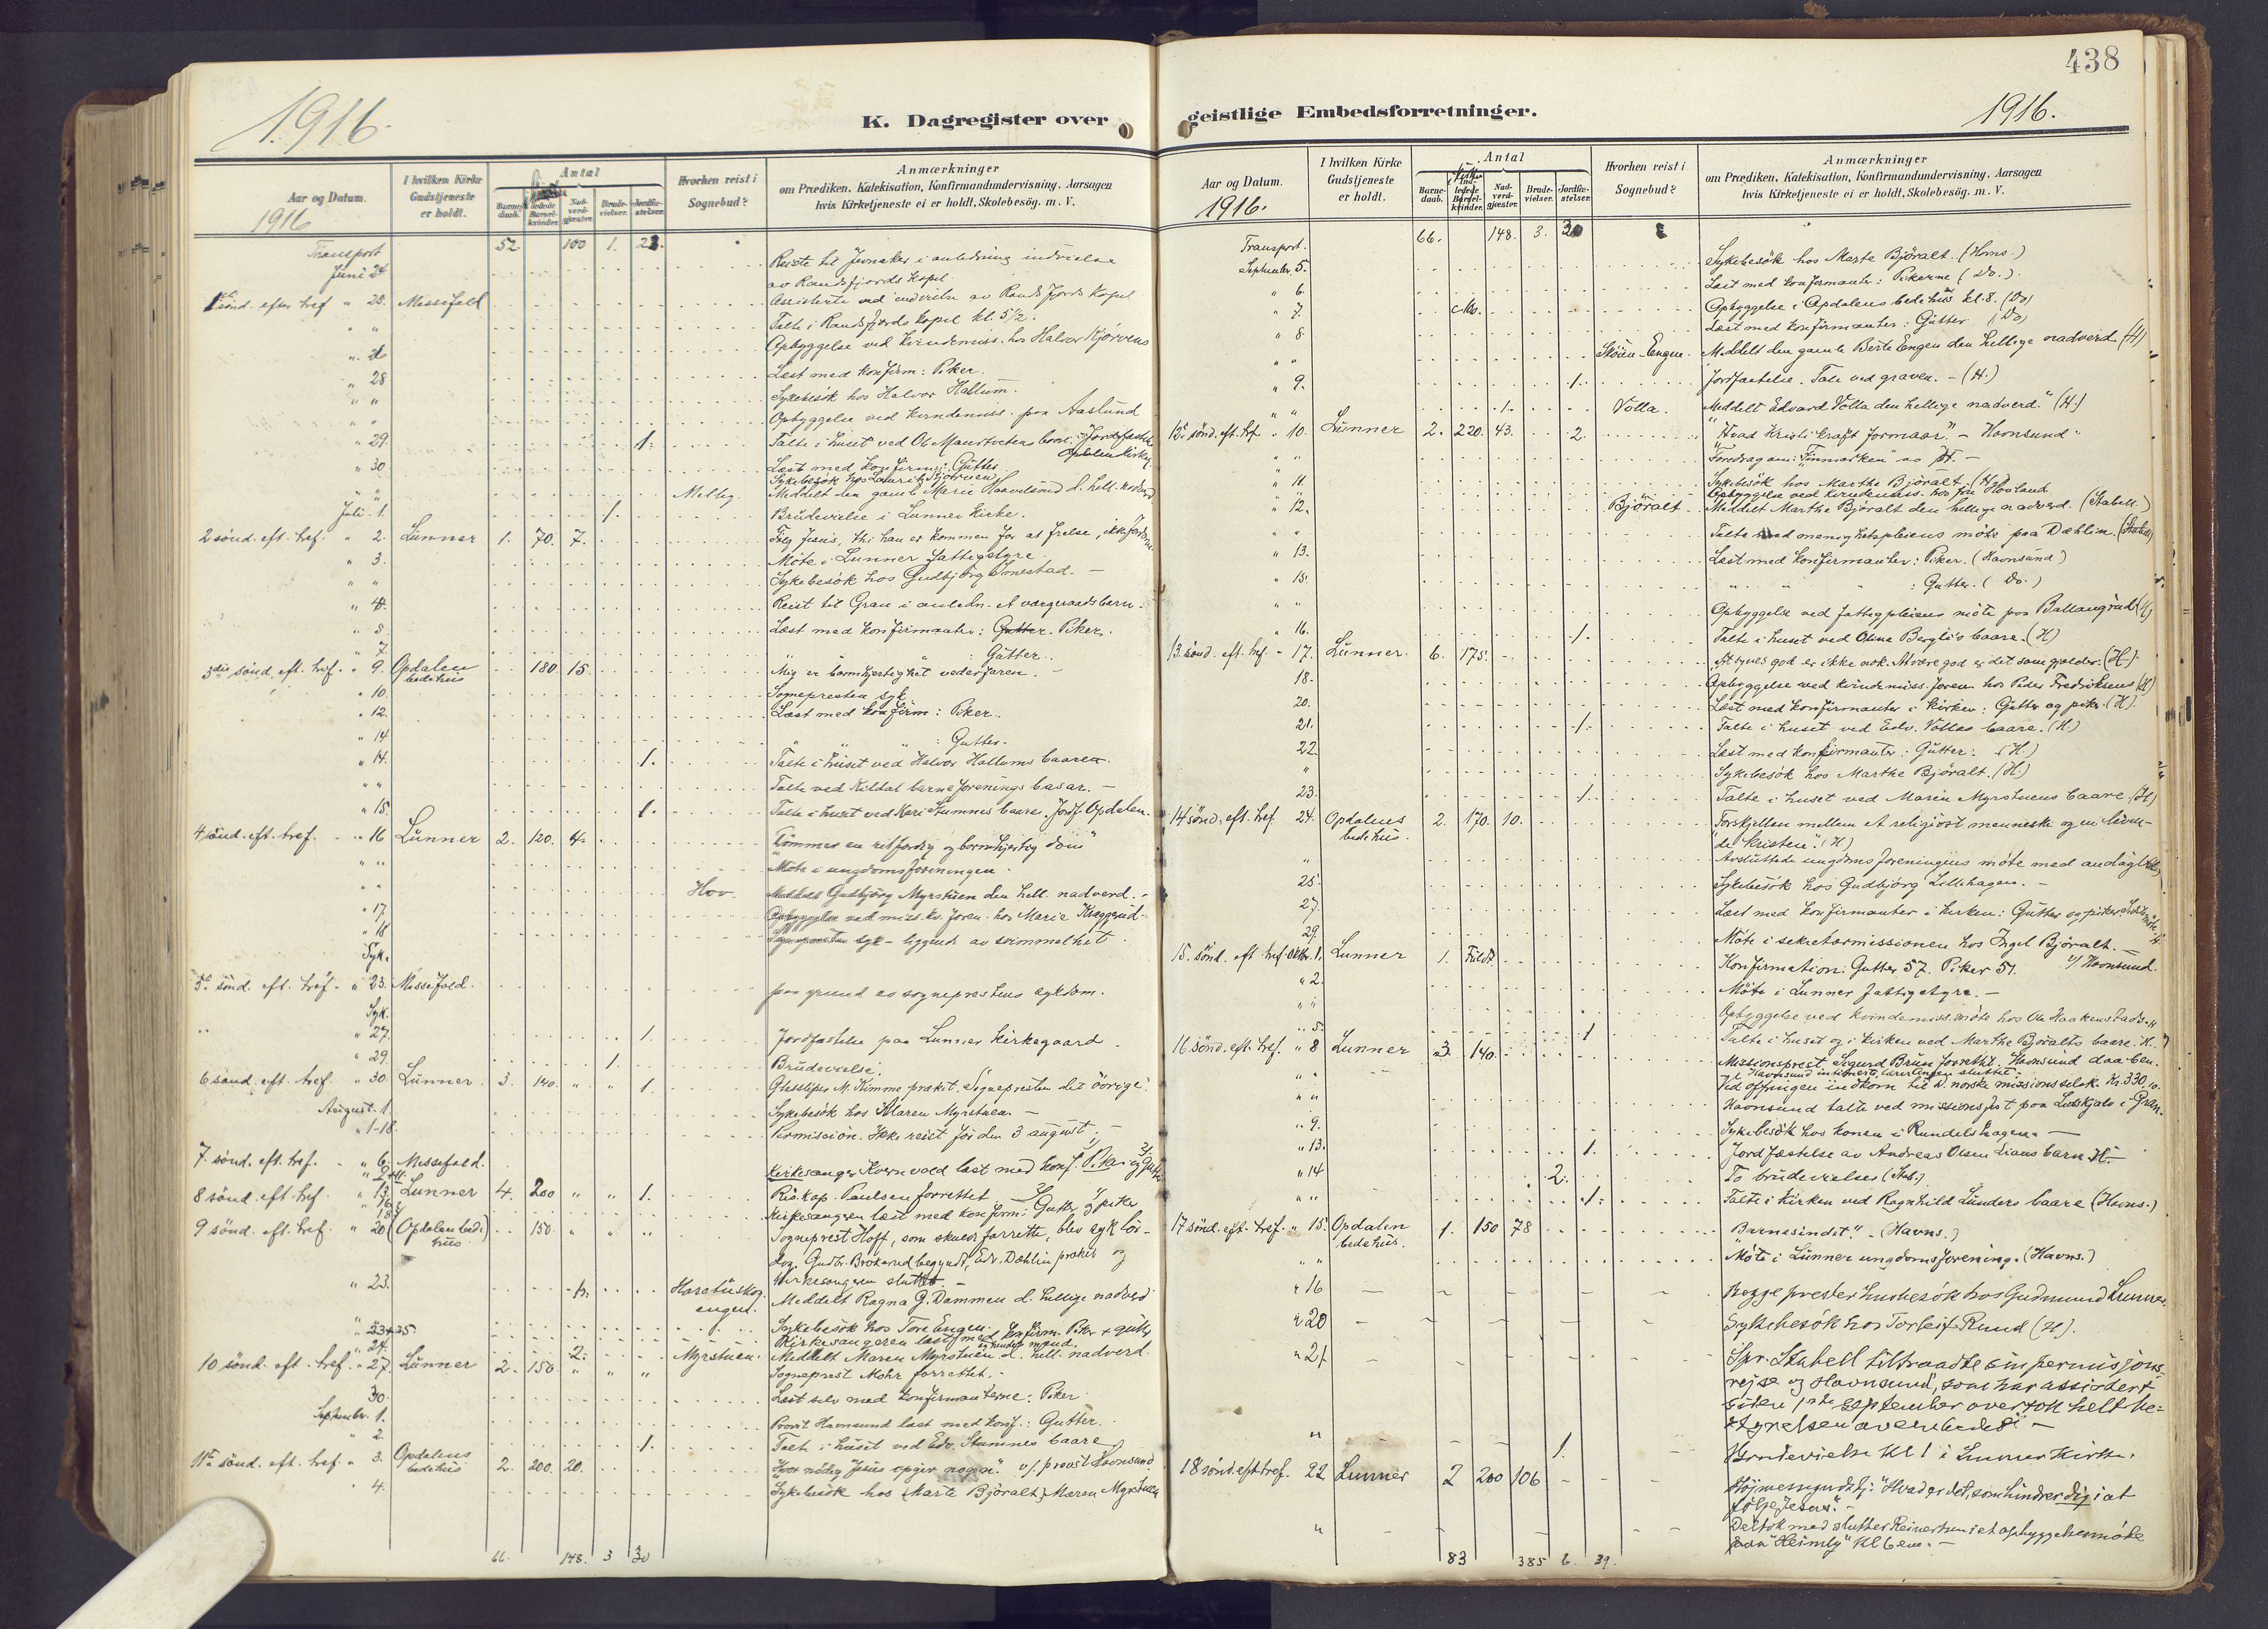 438
1916.
K. Dagregister over
Aar og Datum.
1916
I hvilken Kirke Gudstjeneste er holdt.
Antal
Barne-daab.
Brude-vielser.
Jordfæ-stelser.
Hvorhen reist i Sognebud?
Anmærkninger
om Prædiken, Katekisation, Konfirmandundervisning, Aarsagen
hvis Kirketjeneste ei er holdt, Skolebesög. m. V.
Transport 52. 100 1.
Juni 24 Reiste til Jevnaker i anledning indvielse
av Randsfjords kapel.
1ste sønd. efter tref " 25. Messefald Assisterte ved indvielse av Randsfjords kapel
" " Talte i Randsfjords kapel kl. 5 1/2.
" 26 Opbyggelse ved kvindemiss. hos Halvor Kjørvens
" 28 Læst med konfirm: Piker.
" " Sykebesök hos Halvor Hallum.
" " Opbyggelse ved kvindemiss. paa Aaslund
" 29. 1. Talte i huset ved Ol. barn. Jordfæstet
Opdalen kirkeg.
" 30 Læst med konfirm: Gutter.
Sykebesök hos
" " Melbg. Meddelt den gamle Marie d. hell. nadverd
Juli 1. 1. Brudevielse i Lunner kirke.
2 sönd. eft. tref. " 2. Lunner 1. 70. 7. Fölg Jesus, thi han er kommen for at frelse, ikke fordömme
" 3. Möte i Lunner fattigstyre
" " Sykebesök hos Gudbjörg Smestad. -
" 4. Reist til Gran i anledn. et vergeraadsbarn.
" 5 Læst med konfirmanter: Gutter. Piker.
" 7 " " " : Gutter.
3die sönd. eft. tref. " 9. Opdalen bedehus 180. 15. Mig er barmhjertighet vederfaren. -
" 10. Sognepresten syk
" 12. Læst med konfirm: Piker.
" 14 " " " : Gutter.
" 14. 1. Talte i huset ved Halvor Hallums baare.
" " Talte ved Kildal barneforenings basar. -
" 15. 1. Talte i huset ved Kari baare. Jordf. Opdalen.
4 sönd. eft. tref. " 16 Lunner 2. 120. 4. en retferdig og barmhjertig dom"
" " Möte i ungdomsforeningen.
" " Hov. Meddelt Gudbjörg Myrstuen den hell. nadverd. -
" 17. Opbyggelse ved miss. kv. foren. hos Marie Kraggerud.
" 18 Sognepresten syk - liggende av svimmelhet.
Syk.
5te sönd. eft. tref. " 23. Messefald. paa grund av sogneprestens sykdom.
Syk.
" 27. 1. Jordfæstelse paa Lunner kirkegaard.
" 29. 1. Brudevielse.
6 sönd. eft. tref. " 30 Lunner 3. 140. " " 1. M. Kimme prækte. Sognepresten det övrige.
August. 1. Sykebesök hos Maren Myrstuen -
" 1-18. Permission. Ikke reist för den 3 august. -
7. sönd. eft. tref. " 6. Messefald.
Kirkesanger Kvernvold læst med konf. Piker og Gutter
8 sönd. eft. tref. " 13. Lunner 4. 200 " " 1. Res. kap. Paulsen forrettet
Kirkesangeren læst med konfirm: Gutter og piker
9 sönd. eft. tref. " 20 (Opdalen bedehus) 150. " " " Sogneprest Hoff, som skulde forrette, blev syk lör-
dag. Gudbr. Brökerud begyndt, Edv. Dæhlin prækte og
kirkesangeren sluttet. -
" 23. 1. Haratuskog engen. Meddelt Ragna G. Dammen d. hellige nadverd
" 23+25. Sykebesök hos Tore Engen.
Kirkesangeren læst med konfirm. Piker + gutter
" 24. 2. Myrstuen. Meddelt Maren Myrstuen d. hell. nadverd.
10 sönd. eft. tref. " 27. Lunner 2. 150 " " " Sogneprest Mohr forrettet. -
30. Læst selv med konfirmanterne: Piker
September. 1. Provst Havnsund læst med konf.: Gutter.
" 2. 1. Talt i huset ved Edv. Stumnes baare
11te sönd. eft. tref. " 3. Opdalens bedehus 2. 200. 20. Hvor nödig Jesus opgir nogen." v/ provst Havnsund.
" 4. Sykebesök hos Marte Björalt, Maren Myrstuen
66. 148. 3 30
geistlige Embedsforretninger.
1916.
Aar og Datum.
1916.
I hvilken Kirke Gudstjeneste er holdt.
Antal
Barne-daab.
Ind-ledede Barsel-kvinder.
Nad-verd-gjæster.
Brude-vielser.
Jordfæ-stelser.
Hvorhen reist i Sognebud?
Anmærkninger
om Prædiken, Katekisation, Konfirmandundervisning, Aarsagen
hvis Kirketjeneste ei er holdt, Skolebesög. m. V.
Transport. 66. 148. 3. 30
September. 5. Sykebesök hos Marte Björalt. (Havns.)
" 6. Læst med konfirmanter: Pikerne (Do.).
" 7. Opbyggelse i Opdalens bedehus kl. 8. (Do)
" 8 Læst med konfirmanter: Gutter (Do)
" " Støen-Engen. Meddelt den gamle Berte Engen den hellige nadverd (H)
" 9. 1. Jordfæstelse. Tale ved graven. - (H.)
" " 1. Volla. Meddelt Edvard Volla den hellige nadverd." (H.)
12te sönd. eft. tref. " 10. Lunner 2. 220. 43. 2. "Hvad Kristi kraft formaar." - Havnsund"
" " Foredrag om: "Finmarken" av H. -
" 11. Sykebesök hos Marthe Björalt. (H.)
Opbyggelse ved kvindemiss. hos fru Hovland
" 12. Björalt. Meddelt Marthe Björalt den hellige nadverd. (Stabell)
" " Talte ved menighetspleiens möte paa Dæhlin. (Stabell)
" 13. Læst med konfirmanter: Piker. (Havnsund)
" 15. " " " : Gutter. (Do.)
" " Opbyggelse ved fattigpleiens möte paa Ballangrud (H)
" 16. 1. Talte i huset ved Olina Berglis baare. (H)
13. sönd. eft. tref. " 17. Lunner. 6. 175. "At synes god er ikke nok. At være god er det som gjælder. (H.)
18. Opbyggelse ved kvindemiss. foren. hos Peder Fredriksens (H)
20. Læst med konfirmanter i kirken: Gutter og piker. (H).
21. 1. Talte i huset ved Edv. Vollas baare. (H.)
22. Læst med konfirmanter: Gutter. (H.)
" Sykebesök hos Marthe Björalt. (H.)
23. 1. Talte i huset ved Maren Myrstuens baare (H)
14 sönd. eft. tref 24. Opdalens bedehus. 2. 170. 10. Forskjellen mellem et religiöst menneske og en leven-
de kristen". (H)
" Avsluttede ungdomsforeningens möte med andagt
25. Sykebesök hos Gudbjörg Lillehagen. -
27. Læst med konfirmanter i kirken: Gutter og piker.
29. Möte i sekretærmissionen hos Ingel Björalt. -
15. sönd. eft. tref. oktbr. 1. Lunner 1. Fuldt. Konfirmation: Gutter 57. Piker 51. v/ Havnsund.
" 2. Möte i Lunner fattigstyre. -
" " Opbyggelse ved kvindemiss. möte hos Ole Haakenstads. H
" 5. 1 Talte i huset og i kirken ved Marthe Björalts baare. H.
16 sönd. eft. tref. " 8 Lunner 3. 140. Missionsprest Sigurd Bruun forrettet. Havnsund daaben.
" " Ved ofringen indkom til d. norske missionsselsk. Kr. 330,
" " Havnsund talte ved missionsfest paa Lidskjalv i Gran.
" 9. Sykebesök hos konen i Rundelshagen. -
" 13. 1. Jordfæstelse av Andreas Olsen Lians barn H. -
" 14 2. To brudevielser (Stab.)
" " 1. Talte i kirken ved Ragnhild Lunders baare (Havns.)
17 sönd. eft. tref. " 15. Opdalen bedehus. 1. 150 78 "Barnesindet". - (Havns.)
" " Möte i Lunner ungdomsforening. (Havns.)
" 16 Begge prester husbesök hos Gudmund Lunner.
" 20 Sykebesök hos Torleif Ruud (H).
" 21 Spr. Stabell tiltraadte sin permisjons-
rejse og Havnsund, som har assistert
siden 1ste September overtok helt be-
styrelsen av embedet. -
" 1. Brudevielse Kl 1 i Lunner Kirke.
18 sönd. eft tref. 22 Lunner 2 200 106 Höjmessegudstj: "Hvad er det, som hindrer dig i at
fölge Jesus". -
" Deltok med slutter Reinertsen i et opbyggelsesmöte
paa "Heimly" Kl 6 em. -
83 385 6. 39.